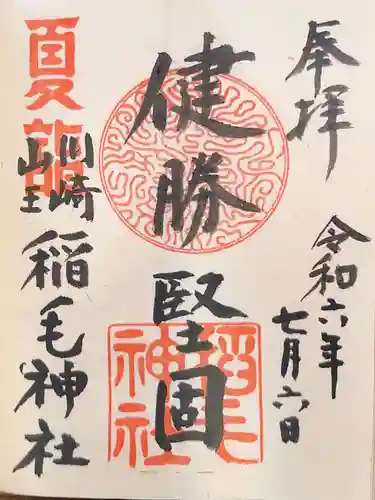 奉拝
令和六年
七月六日
健勝
堅固
稲毛
神社
夏詣
川崎
山王
稲毛神社